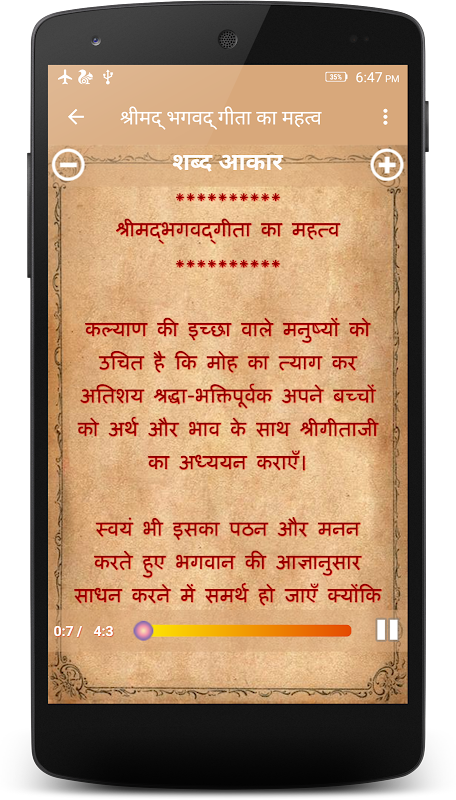 35% 6:47 PM
श्रीमद् भगवद् गीता का महत्व
शब्द आकार
**********
श्रीमद्‌भगवद्‌गीता का महत्व
**********
कल्याण की इच्छा वाले मनुष्यों को
उचित है कि मोह का त्याग कर
अतिशय श्रद्धा-भक्तिपूर्वक अपने बच्चों
को अर्थ और भाव के साथ श्रीगीताजी
का अध्ययन कराएँ।
स्वयं भी इसका पठन और मनन
करते हुए भगवान की आज्ञानुसार
साधन करने में समर्थ हो जाएँ क्योंकि
0:7 / 4:3